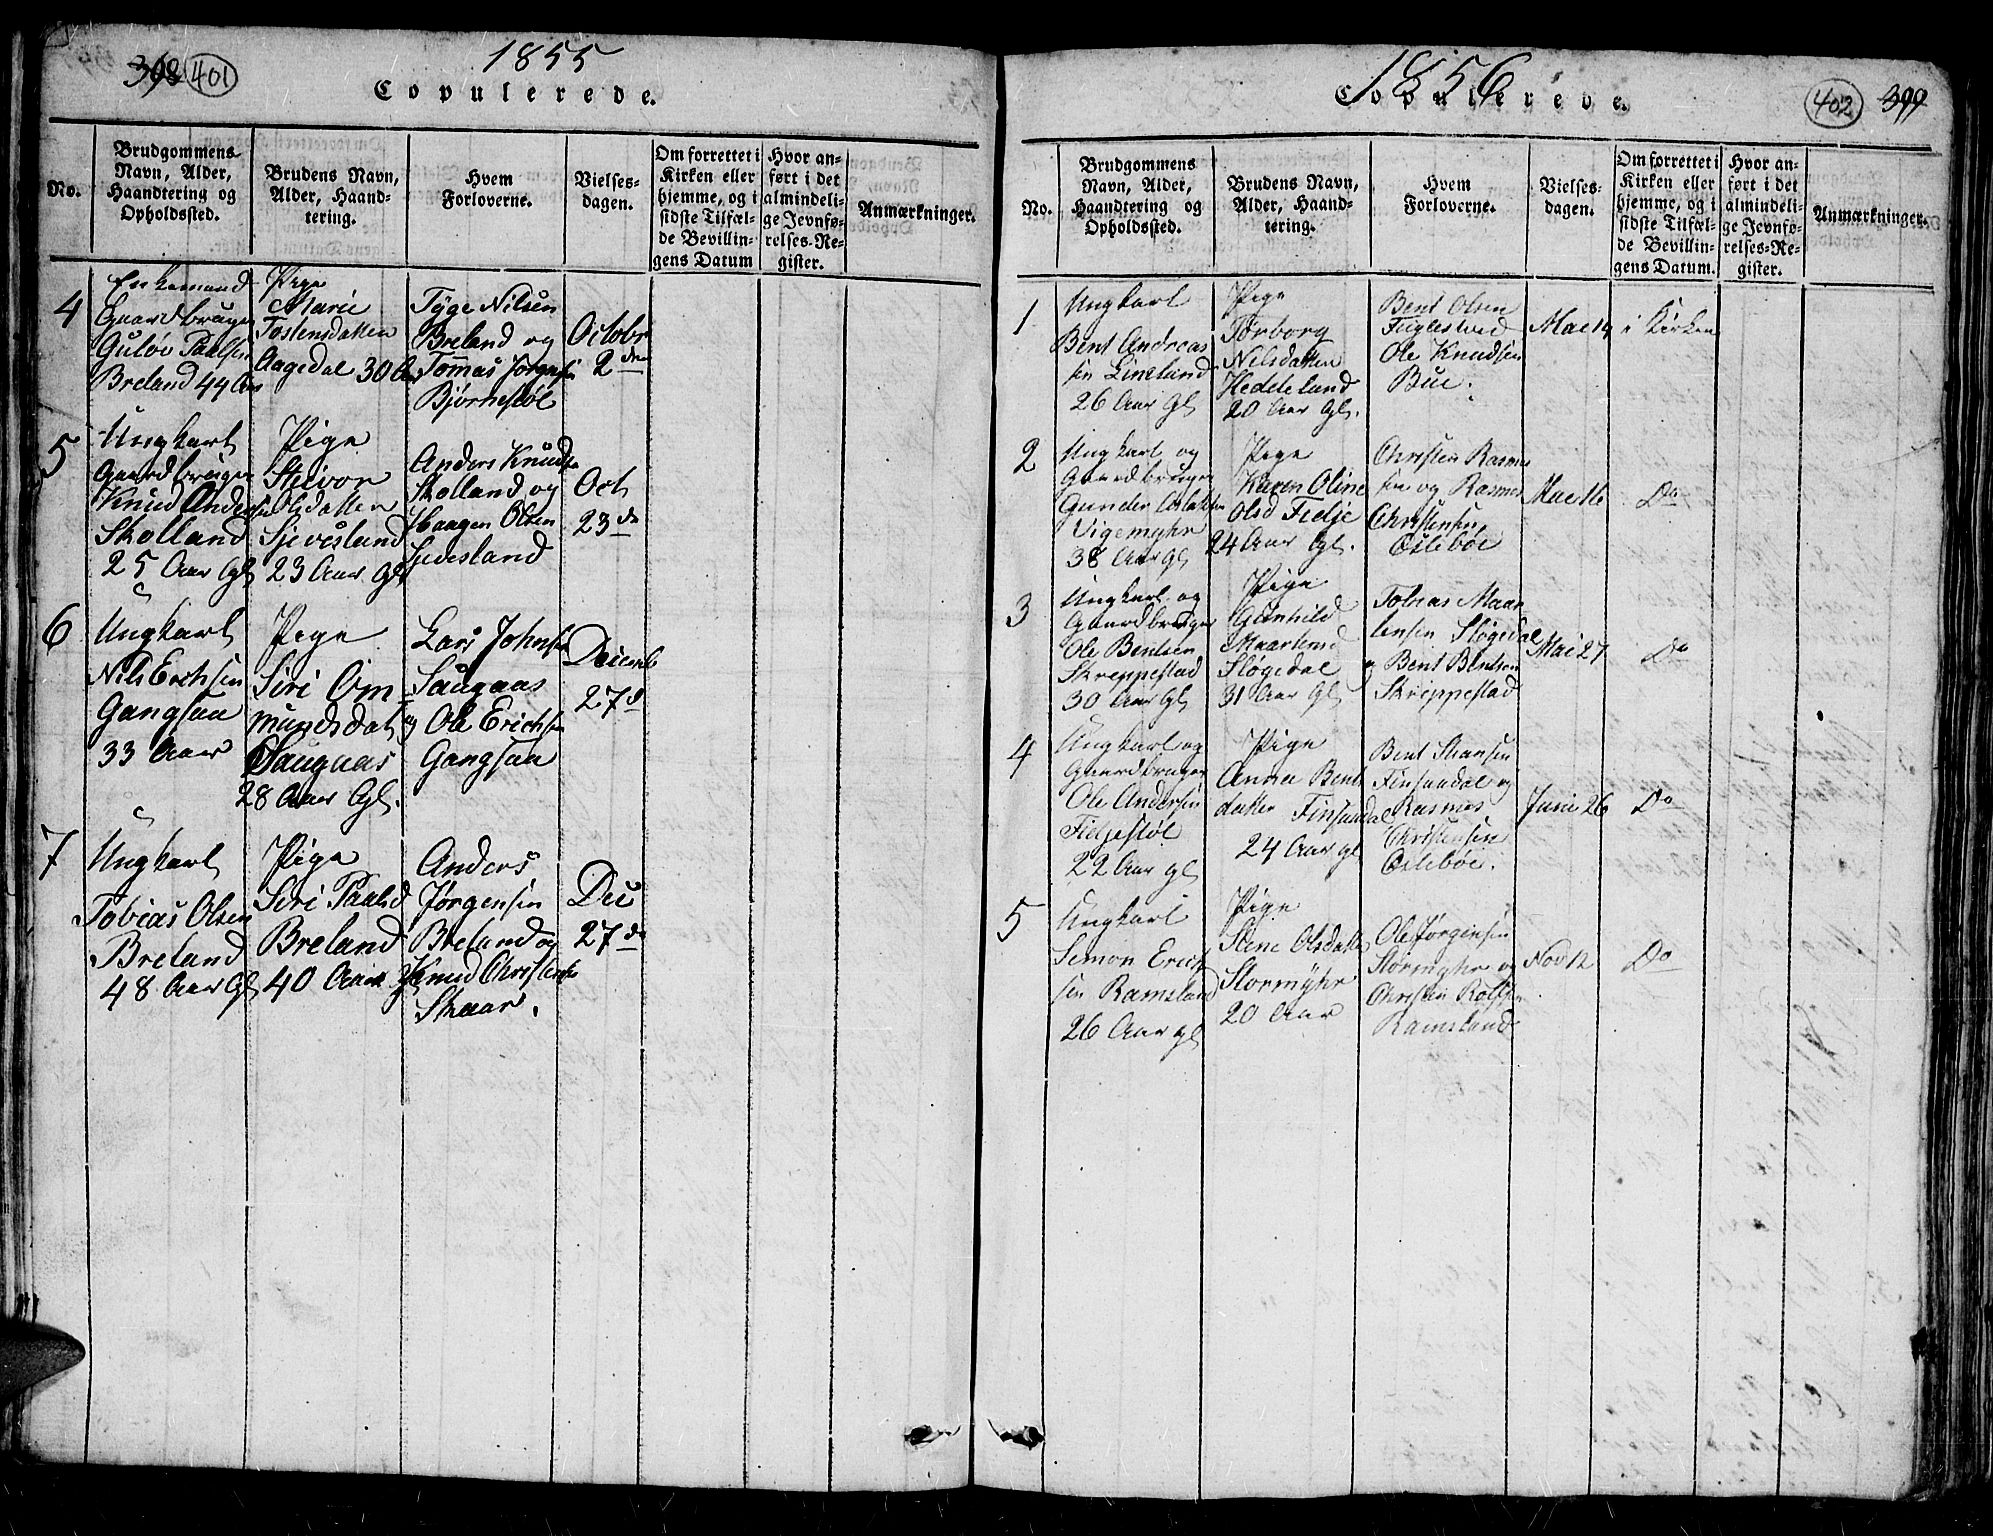 398 401
1855
Copulerede.
No.
Brudgommens Navn, Alder, Haandtering og Opholdssted.
Brudens Navn, Alder, Haandtering.
Hvem Forloverne.
Vielsesdagen.
Om forrettet i Kirken eller hjemme, og i sidste Tilfælde Bevillingens Datum
Hvor anført i det almindelige Jevnførelses-Register.
Anmærkninger.
4
Enkemand
Gaardbruger
Guløv Paulsen
Breland 44 Aar
Pige
Marie
Tostensdatter
Aagedal 30 Aar
Tyge Nilsen
Breland og
Tomas Jørgensen
Bjørnestøl
Octobr
2den
5
Ungkarl
Gaardbruger
Knud Andersen
Skolland
25 Aar Gl
Pige
Steivor
Olsdatter
Sjeveslund
23 Aar Gl
Anders Knudsen
Skolland og
Haagen Olsen
Sjevesland
Oct
23de
6
Ungkarl
Nils Erichsen
Gangsaa
33 Aar
Pige
Siri Om
mundsdat
Saugaas
28 Aar Gl.
Lars Johnsen
Saugaas
og Ole Erichsen
Gangsaa
Decemb
27d
7
Ungkarl
Tobias Olsen
Breland
48 Aar Gl
Pige
Siri Paulsd
Breland
40 Aar Gl
Anders
Jørgensen
Breland og
Knud Christensen
Skaar.
Dec
27de
1856
Copulerede.
402 399
No.
Brudgommens Navn, Alder, Haandtering og Opholdssted.
Brudens Navn, Alder, Haandtering.
Hvem Forloverne.
Vielsesdagen.
Om forrettet i Kirken eller hjemme, og i sidste Tilfælde Bevillingens Datum.
Hvor anført i det almindelige Jevnførelses-Register.
Anmærkninger.
1
Ungkarl
Bent Andreas
sen Lineland
26 Aar Gl
Pige
Torborg
Nilsdatter
Heddeland
20 Aar Gl.
Bent Olsen
Fuglestved
Ole Knudsen
Bue.
Mai 19
i Kirken
2
Ungkarl og
Gaardbruger
Gunder Aslaksen
Vigemyhr
38 Aar Gl
Pige
Karen Oline
Olsd Fidje
24 Aar Gl.
Christen Rasmus
sen og Rasmus
Christensen
Oslebøe
Mai 16
Do
3
Ungkarl og
Gaardbruger
Ole Bentsen
Skreppestad
30 Aar Gl
Pige
Gunhild
Maartensd
Sløgedal
31 Aar Gl
Tobias Maar
tensen Sløgedal
og Bent Bentsen
Skreppestad
Mai 27
Do
4
Ungkarl og
Gaardbruger
Ole Andersen
Fidjestøl
22 Aar gl
Pige
Anna Bents
datter Finsaadal
24 Aar gl
Bent Hansen
Finsaadal og
Rasmus
Christensen
Oslebøe.
Juni 26
Do
5
Ungkarl
Simon Erick
sen Ramsland
26 Aar gl
Pige
Stene Olsdatter
Stormyhr
20 Aar
Ole Jørgensen
Stormyhr og
Christen Rolfsen
Ramsland
Nov 12
Do